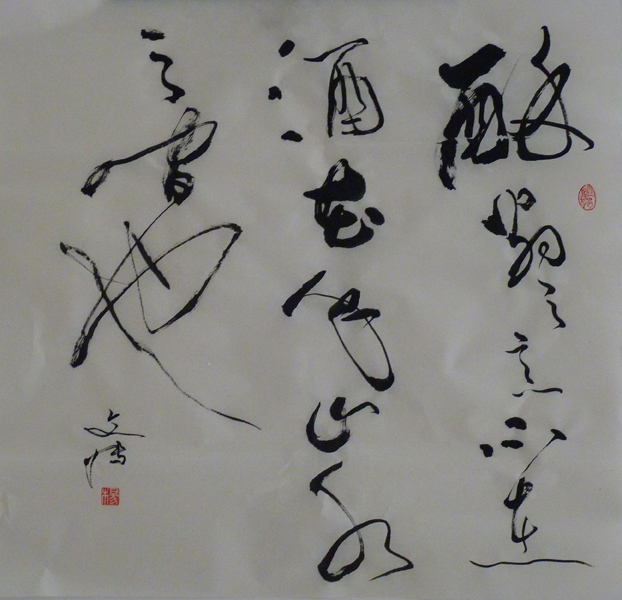 醉翁之意不在
酒在乎山水
之間也
文